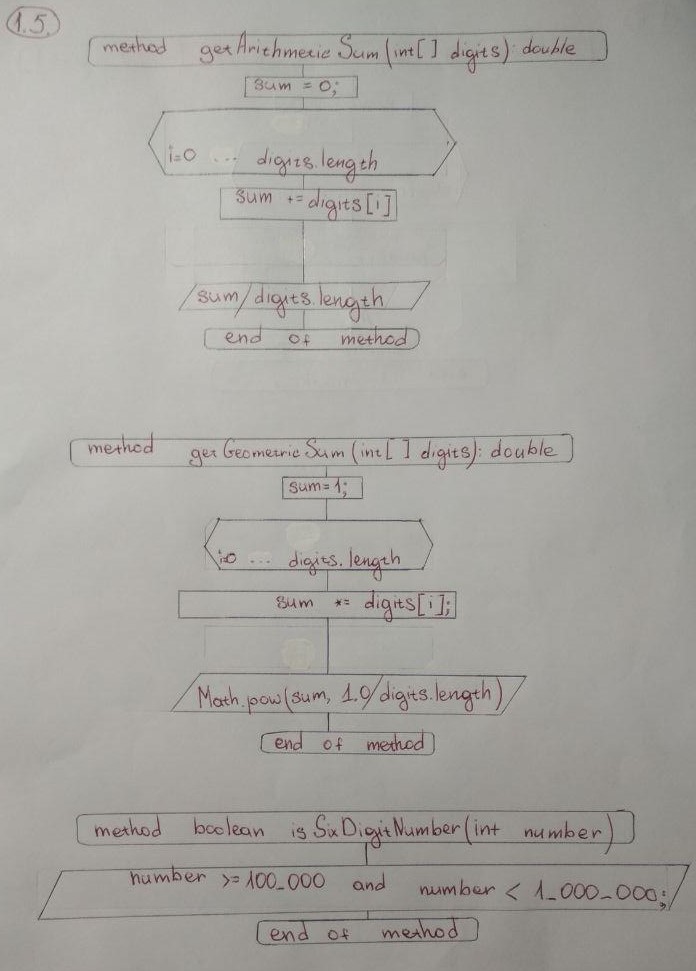 1.5.
method getArithmeticSum(int[] digits): double
sum = 0;
i=0 ... digits.length
sum += digits[i]
sum/digits.length
end of method
method getGeometricSum(int[] digits): double
sum=1;
i=0 ... digits.length
sum *= digits[i];
Math.pow(sum, 1.0/digits.length)
end of method
method boolean isSixDigitNumber(int number)
number >= 100_000 and number < 1_000_000;
end of method